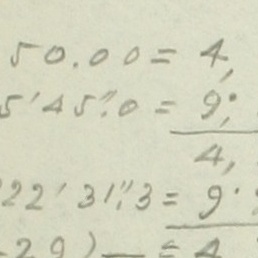 50.00 = 4,
5'45".0 = 9;
4,
22' 31".3 = 9.
29) — = 4